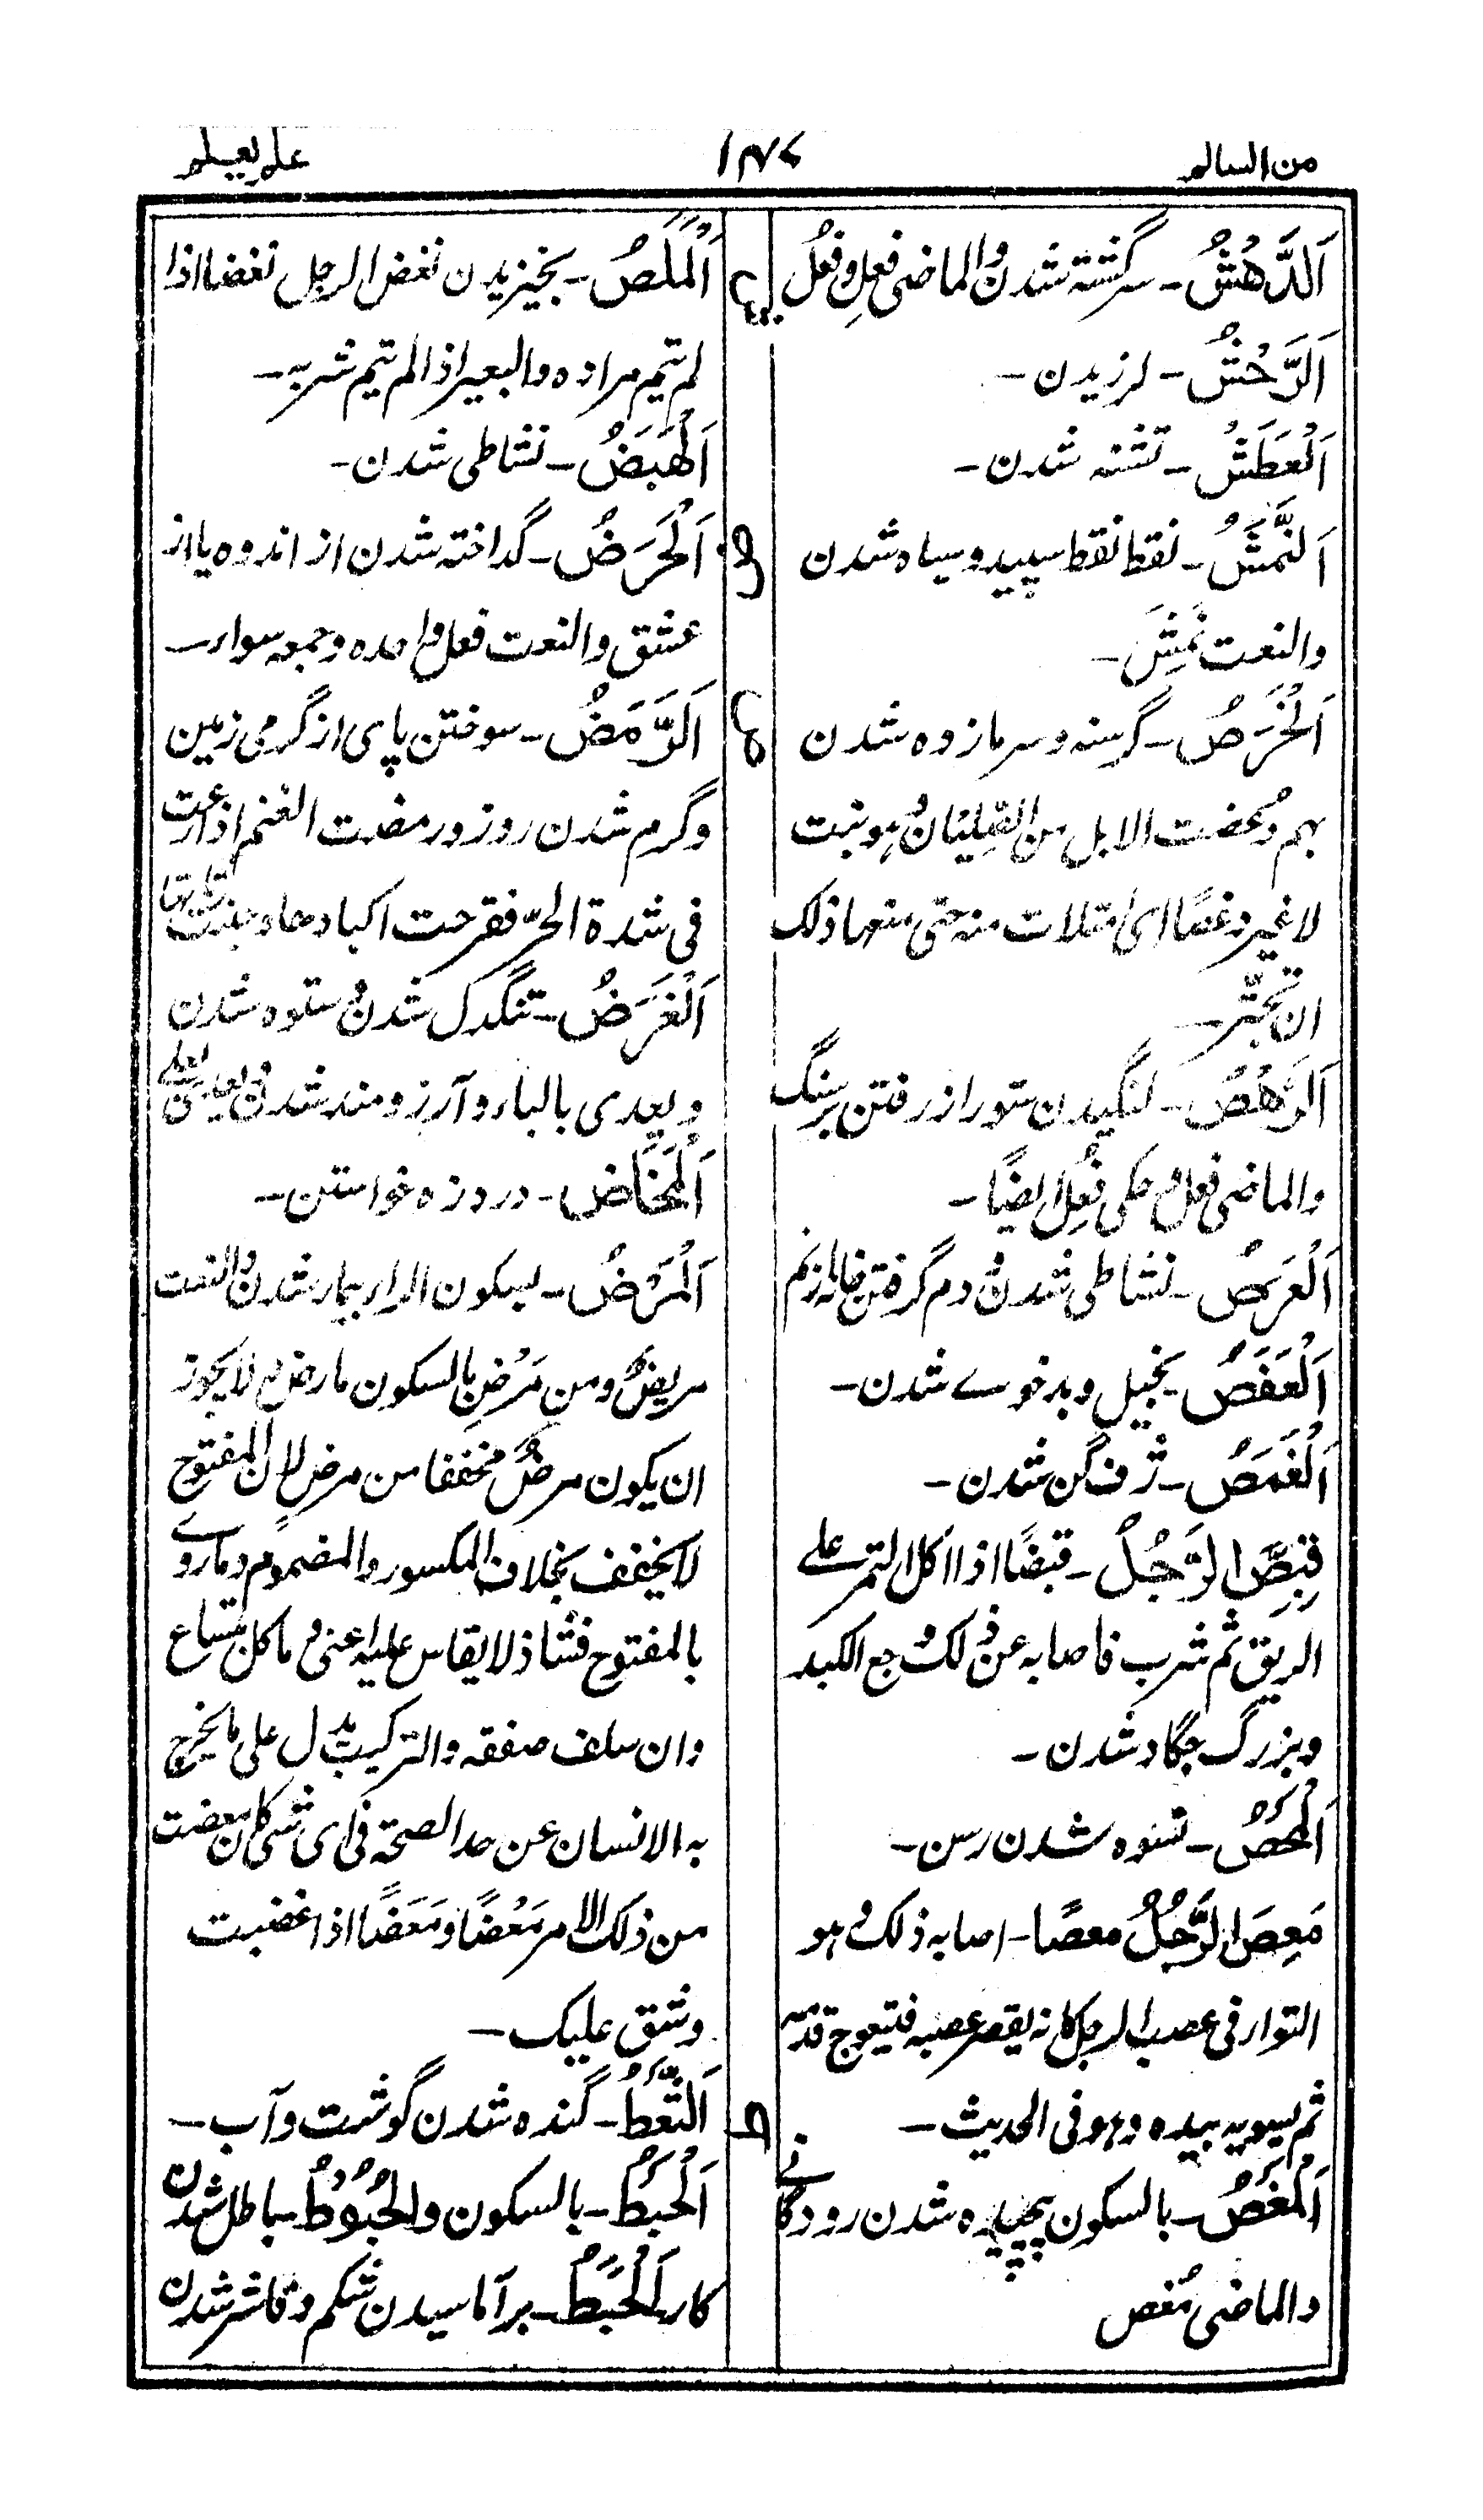 من السالم
۱۴۷
علم یعلم
اَلدَّهْشُ ـ سرگشته شدن والماضی فعِل وفعُل
اَلرَّحْشُ ـ لرزیدن ـ
اَلْعَطَشُ ـ تشنه شدن ـ
اَلنَّمَشُ ـ نقط نقط سپید و سیاه شدن
والنعت نَمِشَ ـ
اَلْخَرَصُ ـ گرسنه و سرما زده شدن
بهم الابل من القِلِیّان وهو نبت
لا غیر دغصًا ای امتلات منه حتی منعها ذلک
ان تجتر ـ
اَلرَّهْصُ ـ لنگیدن ستور از رفتن بر سنگ
والماضی فعل وحکی فُعِل ایضًا ـ
اَلْعَرَصُ ـ نشاطی شدن ودم گرفتن خانه از نم
اَلْعَفَصُ ـ بخیل و بدخوے شدن ـ
اَلْغَمَصُ ـ ژفگن شدن ـ
قَبِصَ الرَّجُلُ ـ قبصًا اذا اکل التمر علے
الریق ثم شرب فاصابه عن ذلک وجع الکبد
وبزرگ شدن ـ
اَلْمَحَصُ ـ شدن رسن ـ
مَعِصَ الرَّجُلُ معصًا ـ اصابه ذلک وهو
التواء فی عصب الرجل کانه یقصر عصبه فتیعوج قدمه
ثم یسویه بیده وهو فی الحدیث ـ
اَلْمَغَصُ ـ بالسکون پیچیده شدن رودگانے
والماضی مُغص
اَلْمَلَصُ ـ بخیزیدن نغض الرجل نغضا اذا
لم یتم مراده والبعیر اذا لم یتم شربه ـ
اَلْهَبَصُ ـ نشاطی شدن ـ
ض
اَلْحَرَضُ ـ گداخته شدن از اندوه یا از
عشق والنعت فعل واحده وجمعه سواء ـ
اَلرَّمَضُ ـ سوختن پای از گرمی زمین
وگرم شدن روز ورمضت الغنم اذا رعت
فی شدة الحرّ فقرحت اکبادها
اَلْغَرَضُ ـ تنگدل شدن و ستوه شدن
ویعدی بالباء و آرزومند شدن
اَلْمَخَاض ـ درد زه خواستن ـ
اَلْمَرْضُ ـ بسکون الراء بیمار شدن والنعت
مریض ومن مَرْض بالسکون مارض ولا یجوز
ان یکون مرض مخففا من مرض لان المفتوح
لا یخفف بخلاف المکسور والمضموم وما روے
بالمفتوح فشاذ لا یقاس علیه اعنی وما کل مبتاع
وان سلف صفقه والترکیب یدل علی ما یخرج
به الانسان عن حد الصحة فی ای شیٔ کان معضت
من ذلک الامر مَعْضًا و مَعَضًا اذا غضبت
وشق علیک ـ
ط
اَلثَّعَطُ ـ گنده شدن گوشت و آب ـ
اَلْحَبْطُ ـ بالسکون والحُبُوْطُ ـ باطل شدن
کار اَلْحَبَطُ ـ برآماسیدن شکم و شدن